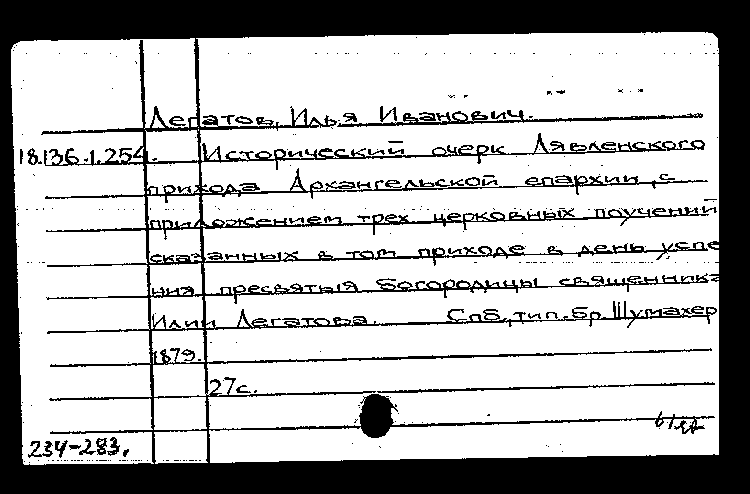 Легатов, Илья Иванович.
18.136.1.254. Исторический очерк Лявленского
прихода Архангельской епархии, с
приложением трех церковных поучений
сказанных в том приходе в день успе
ния пресвятыя Богородицы священника
Илии Легатова. Спб., тип. бр. Шумахер
1879.
27с.
234-283.